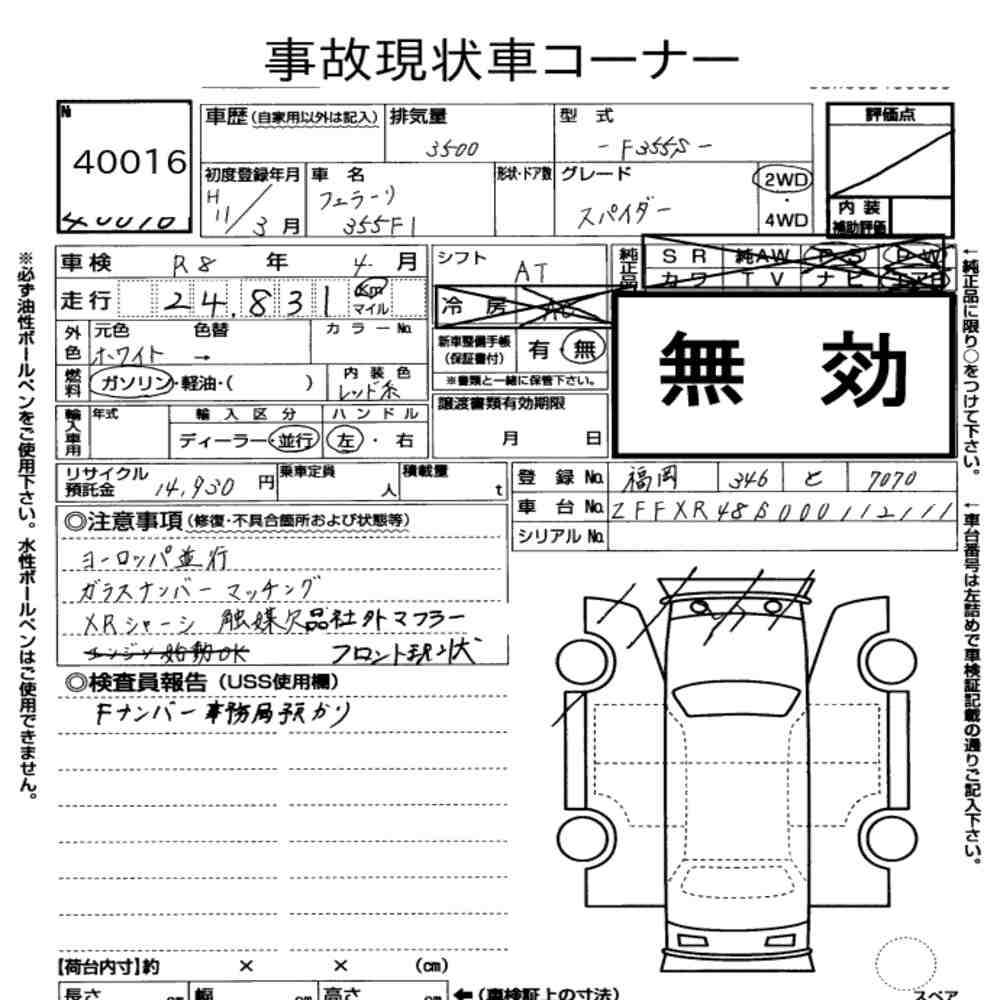 事故現状車コーナー
№
40016
車歴(自家用以外は記入)
排気量
3500
型 式
- F355S -
評価点
初度登録年月
H 11/3 月
車 名
フェラーリ
355F1
形状・ドア数
グレード
スパイダー
2WD
4WD
内 装
補助評価
車 検 R8 年 4 月
シフト
AT
純正品
S R 純AW P S P W
カワ T V ナビ エアB
走 行 24,831 km
マイル
冷 房
外色
元色 色替
ホワイト →
カラーNo.
新車整備手帳
(保証書付)
有・無
※書類と一緒に保管下さい。
無 効
燃料
ガソリン・軽油・( )
内 装 色
レッド系
譲渡書類有効期限
月 日
輸入車用
年式
輸 入 区 分
ディーラー・並行
ハ ン ド ル
左 ・ 右
リサイクル
預託金
14,930 円
乗車定員
人
積載量
t
登 録 No. 福岡 346 と 7070
車 台 No. ZFFXR48S000112111
シリアル No.
◎注意事項(修復・不具合箇所および状態等)
ヨーロッパ並行
ガラスナンバー マッチング
XRシャーシ 触媒欠品社外マフラー
エンジン始動OK フロント現状
◎検査員報告(USS使用欄)
Fナンバー事務局預かり
【荷台内寸】約 × × (cm)
長さ cm 幅 cm 高さ cm ←(車検証上の寸法)
スペア
※必ず油性ボールペンをご使用下さい。水性ボールペンはご使用できません。
←純正品に限り○をつけて下さい。
←車台番号は左詰めで車検証記載の通りご記入下さい。